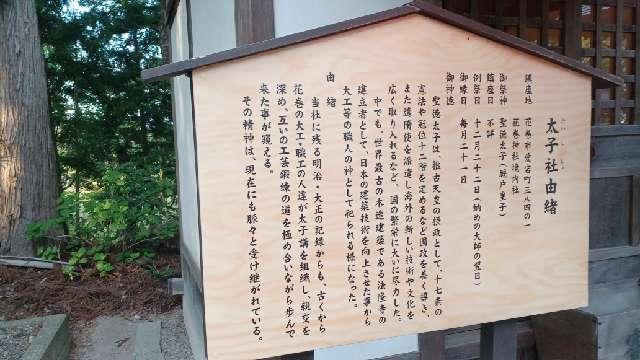 太子社由緒
鎮座地 花巻市愛宕町三ノ四の一
花巻神社境内社
御祭神 聖徳太子(厩戸皇子)
鎮座日 不詳
例祭日 十二月二十一日(納めの大師の宛日)
御縁日 毎月二十一日
御神徳
聖徳太子は推古天皇の摂政として、十七条の
憲法や冠位十二階を定めるなど国政を美く導き、
また遣隋使を派遣し海外の新しい技術や文化を
広く取り入れるなど、国の繁栄に大いに尽力した。
中でも、世界最古の木造建築である法隆寺の
建立者として、日本の建築技術を向上させた事から
大工等の職人の神として祀られる様になった。
由緒
当社に残る明治・大正の記録からも、古くから
花巻の大工・職工の人達が太子講を組織し、親交を
深め、互いの工芸鍛練の道を極め合いながら歩んで
来た事が窺える。
その精神は、現在にも脈々と受け継がれている。